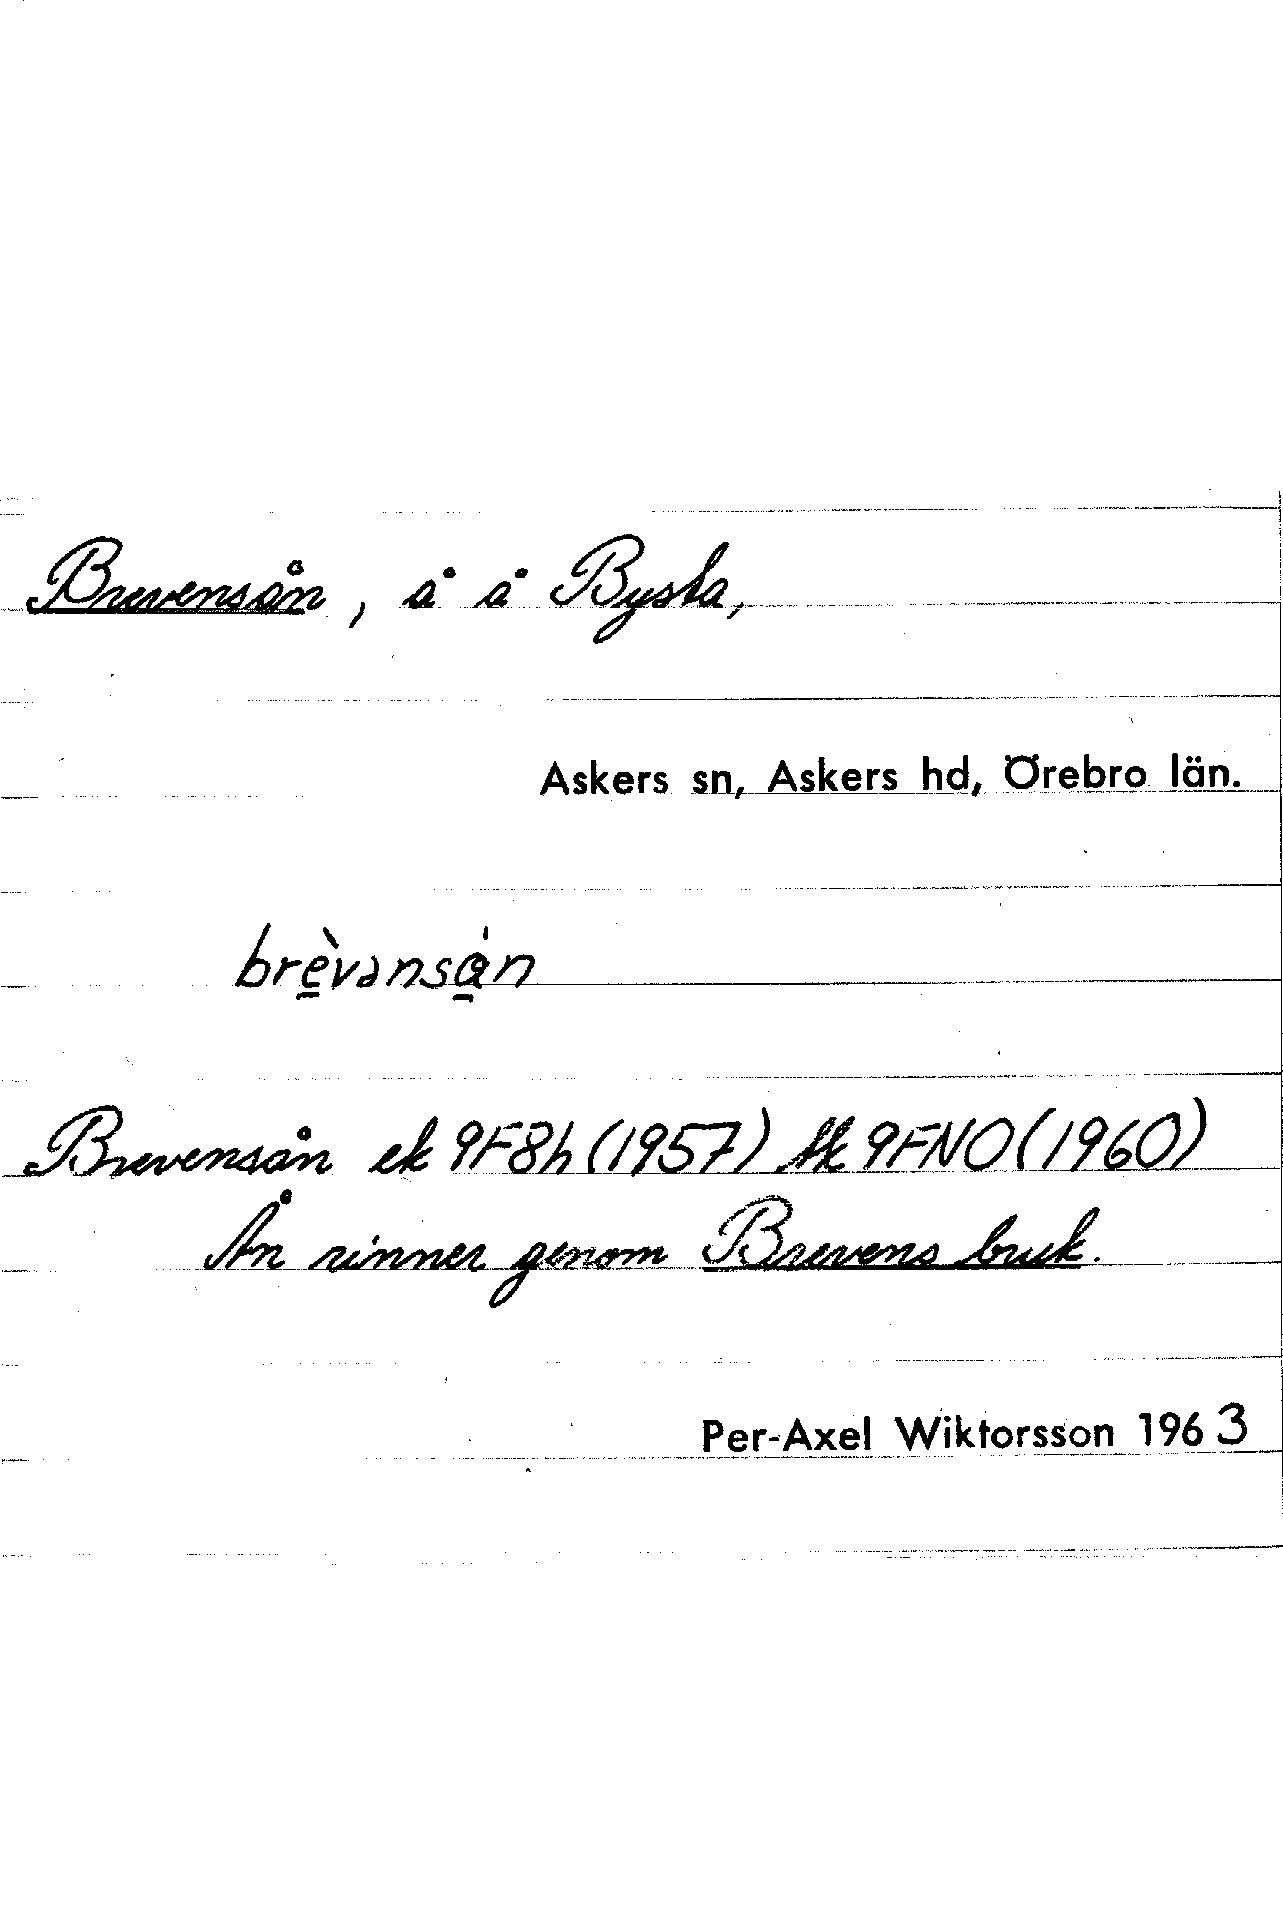 Brevensån, å å Bysta,
Askers sn, Askers hd, Örebro län.
brèvənså̀n
Brevensån ek 9F8h (1957) tk 9FNO (1960)
Ån rinner genom Brevens bruk.
Per-Axel Wiktorsson 1963